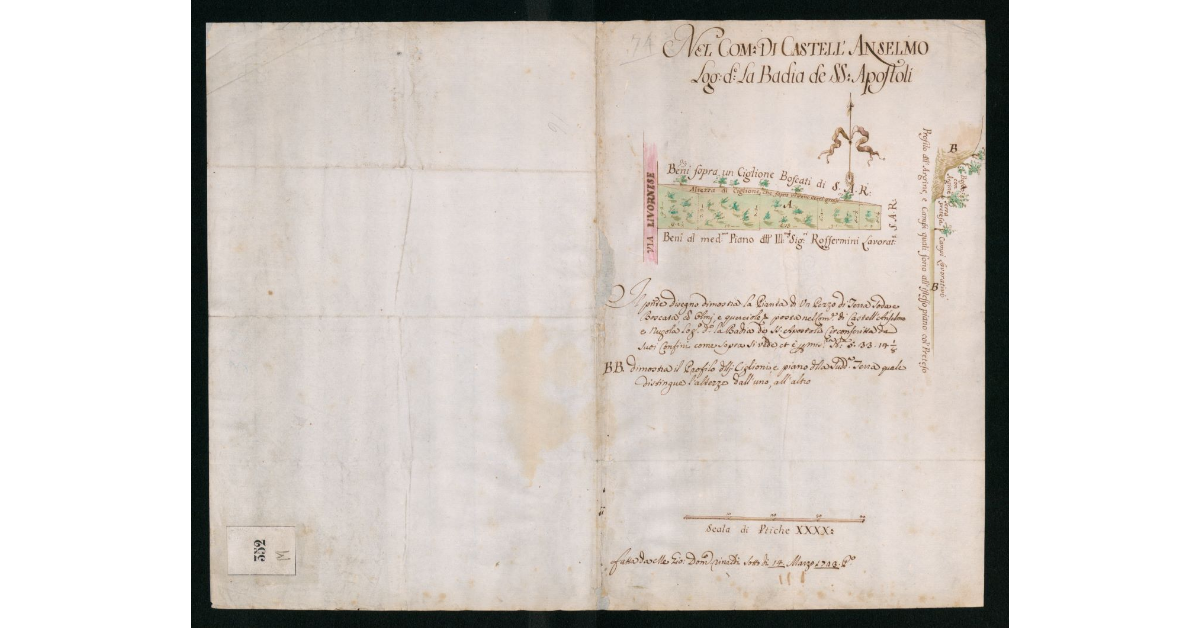 74
NEL COM: DI CASTELL' ANSELMO
Log: d: La Badia de SS: Apostoli
Beni sopra un Ciglione Boscati di S. A. R.
Altezza di Ciglione
A
VIA LIVORNESE
Beni al med. Piano dll' Ill. Sig. Roffermini Lavorat:
S. A. R.
B
Profilo dll' Argine, e Campi quali sono all'istesso piano col Prezzo
Campi Lavorativi
B
Il pnte disegno dimostra la Pianta di Un Pezzo di Terra Sodae
Boscata di Olmi, e querciole posta nel Com. di Castell' Anselmo
e Nugola Log. d. la Badia de SS. Apostoli Circonscritta da
suoi Confini come sopra si vede et è 5. 33. 14 1/3
B.B. dimostra il Profilo dlli Ciglioni, e piano dlla Sud. Terra quale
distingue l'altezze dall'uno, all'altro
Scala di Ptiche XXXX:
fatta da me Gio: Dom. sotto li 14 Marzo 1742
552
M